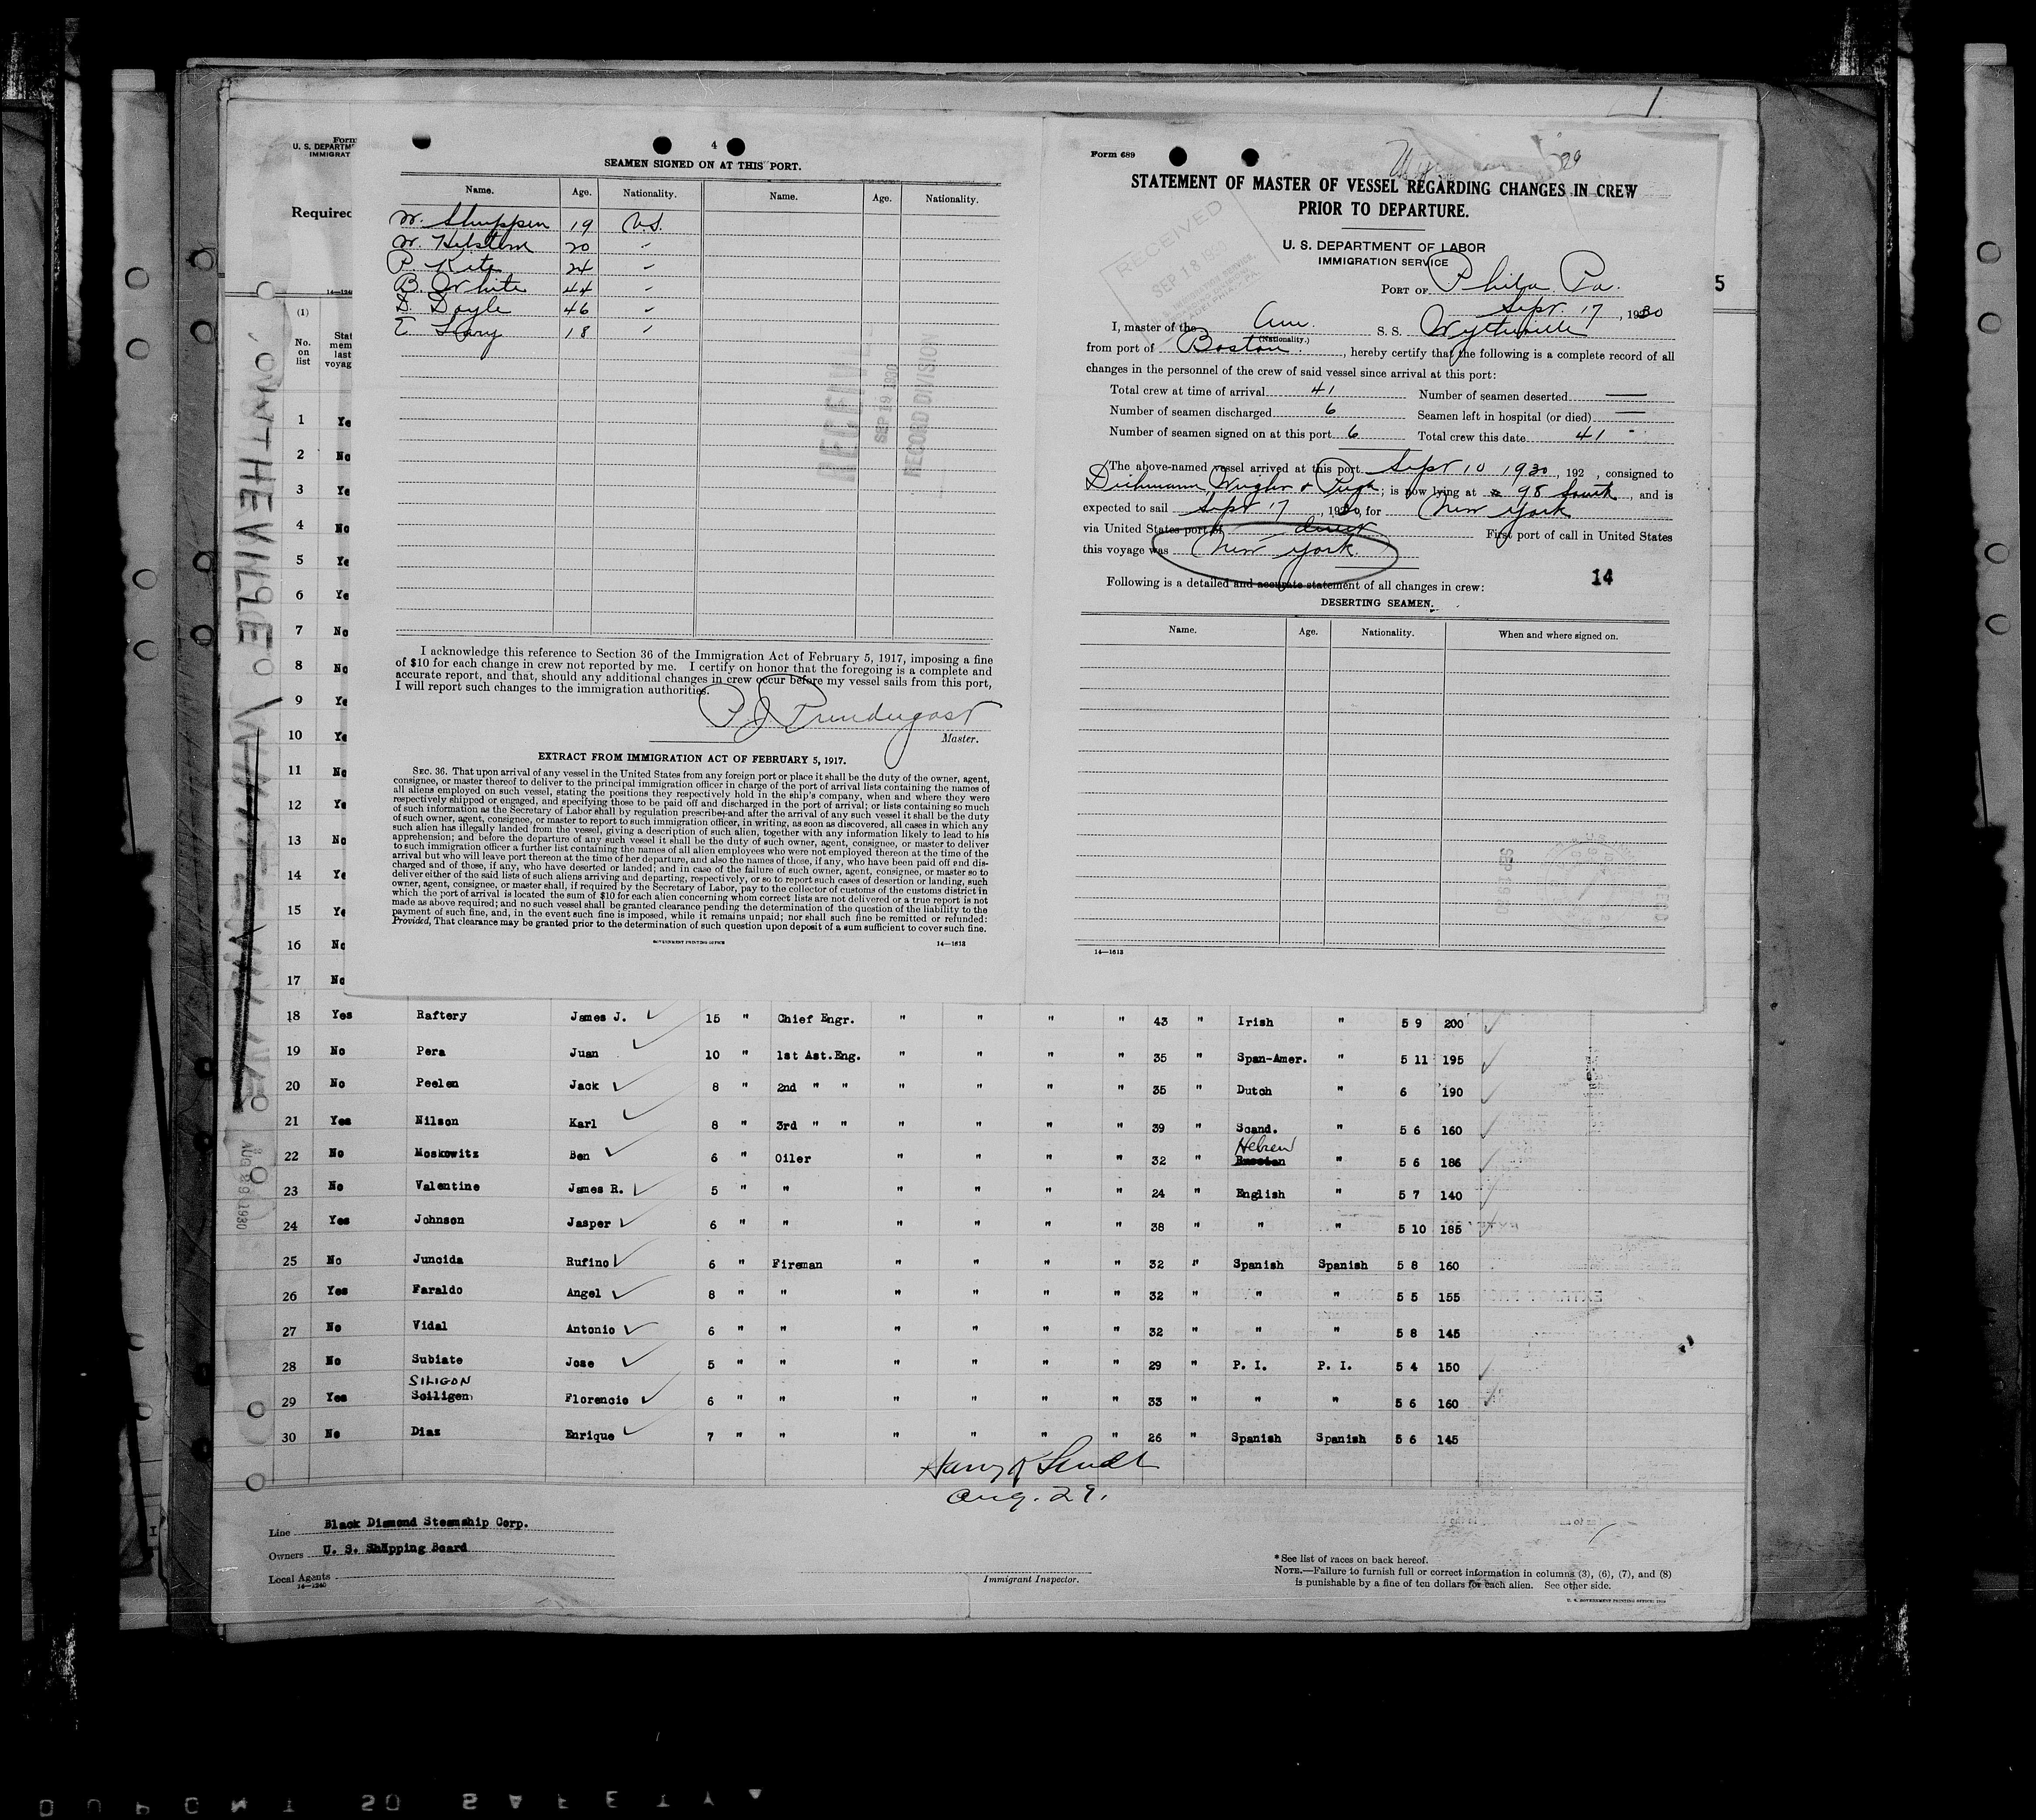 4
SEAMEN SIGNED ON AT THIS PORT.
Name. Age. Nationality. Name. Age. Nationality.
19 U.S.
20 "
P. Kite 24 "
B. White 44 "
D. Doyle 46 "
E. Leary 18 "
RECEIVED
SEP 19 1930
RECORD DIVISION
I acknowledge this reference to Section 36 of the Immigration Act of February 5, 1917, imposing a fine
of $10 for each change in crew not reported by me. I certify on honor that the foregoing is a complete and
accurate report, and that, should any additional changes in crew occur before my vessel sails from this port,
I will report such changes to the immigration authorities.
P J Prendergast
Master.
EXTRACT FROM IMMIGRATION ACT OF FEBRUARY 5, 1917.
SEC. 36. That upon arrival of any vessel in the United States from any foreign port or place it shall be the duty of the owner, agent,
consignee, or master thereof to deliver to the principal immigration officer in charge of the port of arrival lists containing the names of
all aliens employed on such vessel, stating the positions they respectively hold in the ship's company, when and where they were
respectively shipped or engaged, and specifying those to be paid off and discharged in the port of arrival; or lists containing so much
of such information as the Secretary of Labor shall by regulation prescribe; and after the arrival of any such vessel it shall be the duty
of such owner, agent, consignee, or master to report to such immigration officer, in writing, as soon as discovered, all cases in which any
such alien has illegally landed from the vessel, giving a description of such alien, together with any information likely to lead to his
apprehension; and before the departure of any such vessel it shall be the duty of such owner, agent, consignee, or master to deliver
to such immigration officer a further list containing the names of all alien employees who were not employed thereon at the time of the
arrival but who will leave port thereon at the time of her departure, and also the names of those, if any, who have been paid off and dis-
charged and of those, if any, who have deserted or landed; and in case of the failure of such owner, agent, consignee, or master so to
deliver either of the said lists of such aliens arriving and departing, respectively, or so to report such cases of desertion or landing, such
owner, agent, consignee, or master shall, if required by the Secretary of Labor, pay to the collector of customs of the customs district in
which the port of arrival is located the sum of $10 for each alien concerning whom correct lists are not delivered or a true report is not
made as above required; and no such vessel shall be granted clearance pending the determination of the question of the liability to the
payment of such fine, and, in the event such fine is imposed, while it remains unpaid; nor shall such fine be remitted or refunded:
Provided, That clearance may be granted prior to the determination of such question upon deposit of a sum sufficient to cover such fine.
GOVERNMENT PRINTING OFFICE 14—1613
Form 689
STATEMENT OF MASTER OF VESSEL REGARDING CHANGES IN CREW
PRIOR TO DEPARTURE.
RECEIVED
SEP 18 1930
U. S. DEPARTMENT OF LABOR
IMMIGRATION SERVICE
PORT OF Phila. Pa.
Sept. 17, 1930
I, master of the Am. S. S. Wytheville
(Nationality.)
from port of Boston, hereby certify that the following is a complete record of all
changes in the personnel of the crew of said vessel since arrival at this port:
Total crew at time of arrival 41 Number of seamen deserted —
Number of seamen discharged 6 Seamen left in hospital (or died) —
Number of seamen signed on at this port 6 Total crew this date 41
The above-named vessel arrived at this port Sept 10 1930, 192 , consigned to
Dichmann Wright & Pugh; is now lying at # 98 South, and is
expected to sail Sept 17, 1930, for New York
via United States port of direct First port of call in United States
this voyage was New York
14
Following is a detailed and accurate statement of all changes in crew:
DESERTING SEAMEN.
Name. Age. Nationality. When and where signed on.
14—1613
5
Form
U. S. DEPARTM
IMMIGRAT
Required
14—1240
(1)
No. on list
Stat
mem
last
voyag
1 Ye
2 No
3 Ye
4 No
5 Ye
6 Ye
7 No
8 No
9 Ye
10 Ye
11 No
12 Ye
13 No
14 Ye
15 Ye
16 No
17 No
18 Yes Raftery James J. 15 " Chief Engr. " " " " 43 " Irish " 5 9 200
19 No Pera Juan 10 " 1st Ast.Eng. " " " " 35 " Span-Amer. " 5 11 195
20 No Peelen Jack 8 " 2nd " " " " " " 35 " Dutch " 6 190
21 Yes Nilson Karl 8 " 3rd " " " " " " 39 " Scand. " 5 6 160
Hebrew
22 No Moskowitz Ben 6 " Oiler " " " " 32 " Russian " 5 6 186
23 No Valentine James R. 5 " " " " " " 24 " English " 5 7 140
24 Yes Johnson Jasper 6 " " " " " " 38 " " " 5 10 185
25 No Juncida Rufino 6 " Fireman " " " " 32 " Spanish Spanish 5 8 160
26 Yes Faraldo Angel 8 " " " " " " 32 " " " 5 5 155
27 No Vidal Antonio 6 " " " " " " 32 " " " 5 8 145
28 No Subiate Jose 5 " " " " " " 29 " P. I. P. I. 5 4 150
SILIGON
29 Yes Soiligen Florencio 6 " " " " " " 33 " " " 5 6 160
30 No Diaz Enrique 7 " " " " " " 26 " Spanish Spanish 5 6 145
Aug. 29.
AUG 29 1930
Line Black Diamond Steamship Corp.
Owners U. S. Shipping Board
Local Agents
14—1240
Immigrant Inspector.
* See list of races on back hereof.
NOTE.—Failure to furnish full or correct information in columns (3), (6), (7), and (8)
is punishable by a fine of ten dollars for each alien. See other side.
DUPONT SO SAFETY